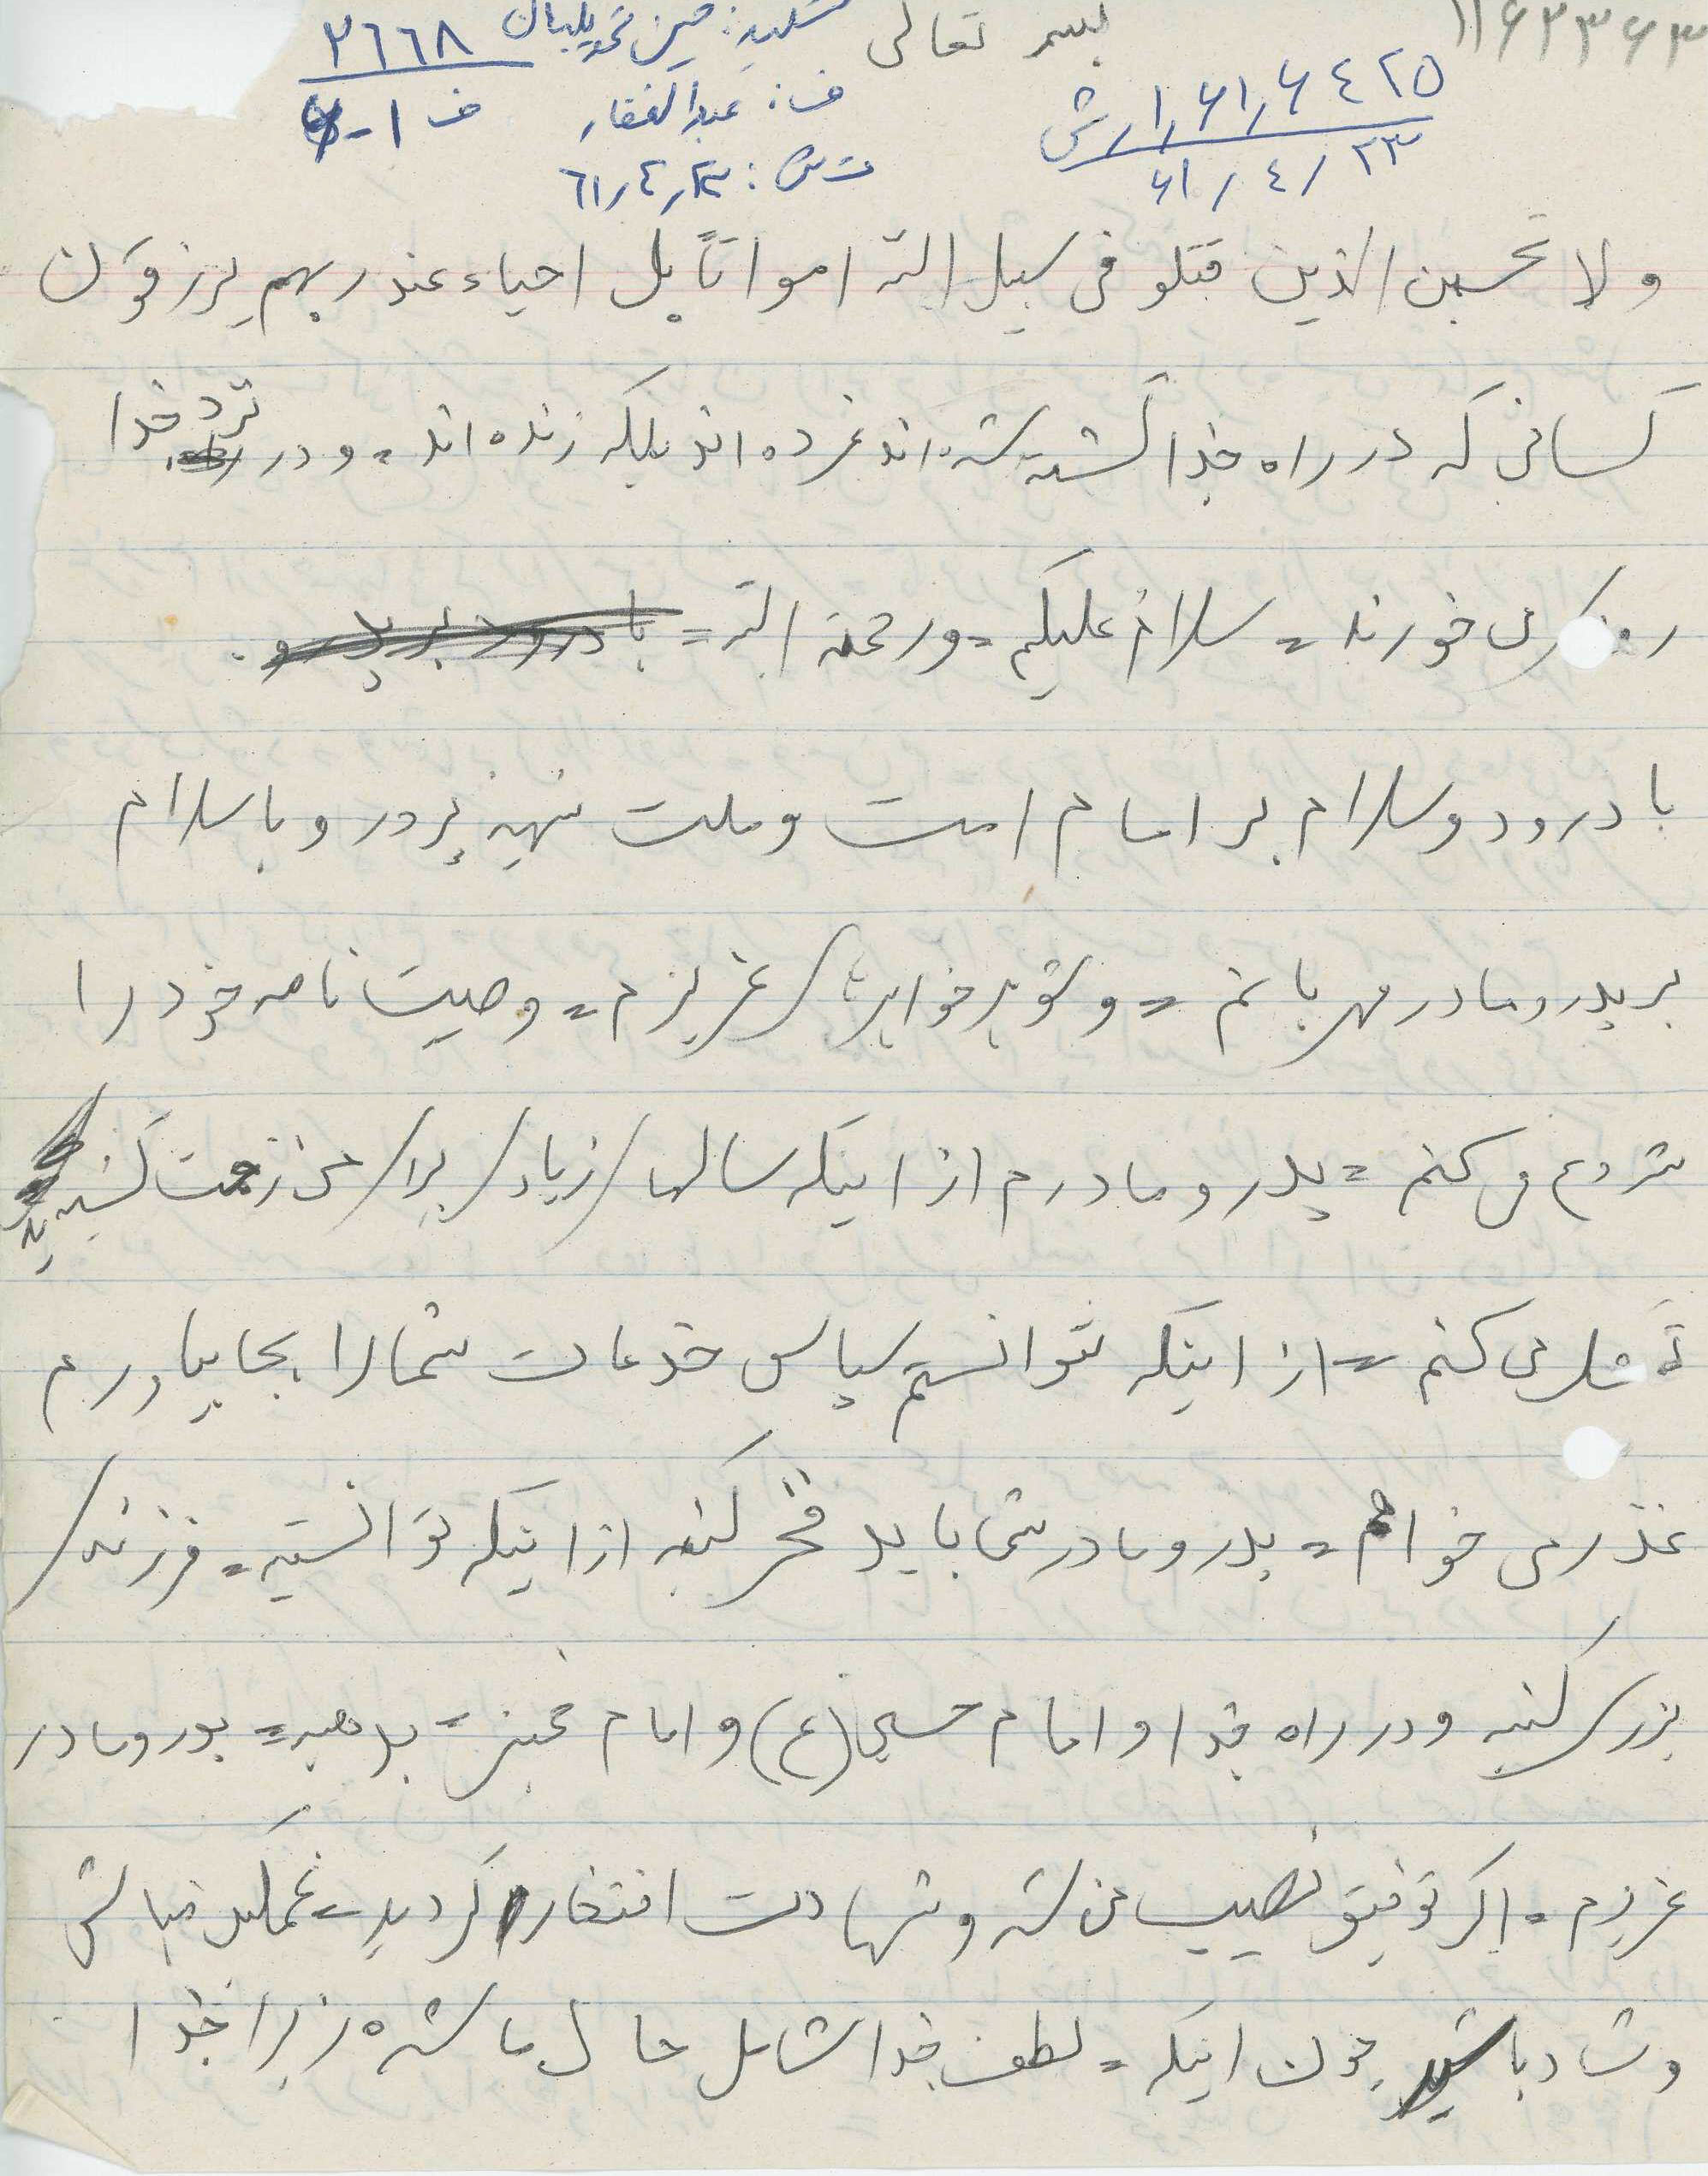 ۱۱۶۲۳۶۳
بسم تعالی
شهید: حسین محمد یلبان
۲۶۶۸
ف ۱-
ف: عبدالغفار
ت ش: ۶۱/۴/۲۳
۱/۶۱/۶۴۲۵ ش
۶۱/۴/۲۳
ولا تحسبن الذین قتلو فی سبیل الله امواتاً بل احیاء عند ربهم یرزقون
کسانی که در راه خدا کشته شده اند نمرده اند بلکه زنده اند = و در نزد خدا
روزی می خورند = سلام علیکم = ورحمة الله = با درود بر پدر و
با درود و سلام بر امام امت و ملت شهید پرور و با سلام
بر پدر و مادر مهربانم = و خواهرهای عزیزم = وصیت نامه خود را
شروع می کنم = پدر و مادرم از اینکه سالهای زیادی برای من زحمت کشیدید
تشکر می کنم = از اینکه نتوانستم سپاس خدمات شما را بجا بیاورم
عذر می خواهم = پدر و مادر شما باید فخر کنید از اینکه توانستید = فرزندی
بزرگ کنید و در راه خدا و امام حسین (ع) و امام خمینی = بدهید = پدر و مادر
عزیزم = اگر توفیق نصیب من شد و شهادت افتخار گردید = غمگین نباش
و شاد باشید چون اینکه = لطف خدا شامل حال ما شده زیرا خدا